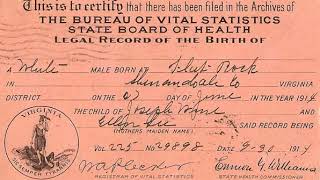 This is to certify that there has been filed in the Archives of
THE BUREAU OF VITAL STATISTICS
STATE BOARD OF HEALTH
LEGAL RECORD OF THE BIRTH OF
A White MALE BORN AT Flint Rock
Shenandoah Co VIRGINIA
DISTRICT ON THE DAY OF June IN THE YEAR 1914
THE CHILD OF Joseph
AND SAID RECORD BEING
(MOTHERS MAIDEN NAME)
VOL. 225 No 29898 DATED 9-30 1914
W A Plecker Ennion G. Williams
REGISTRAR OF VITAL STATISTICS STATE HEALTH COMMISSIONER
VIRGINIA